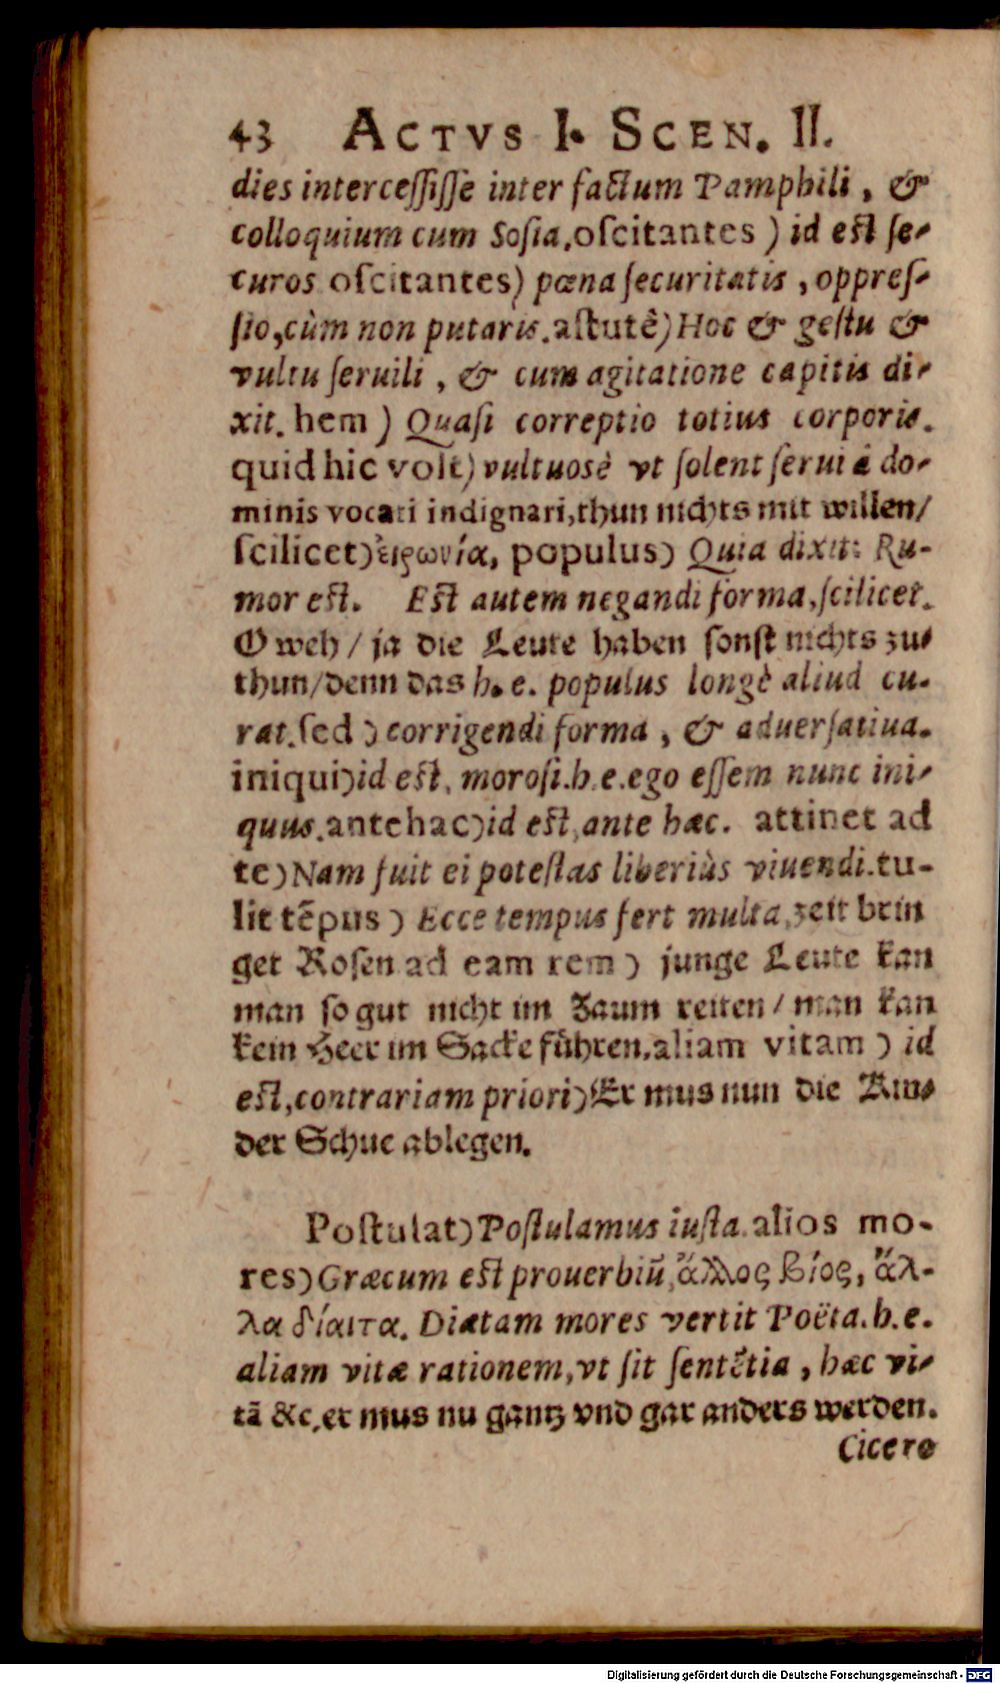 43 ACTVS I. SCEN. II.
dies intercessisse inter factum Pamphili, &
colloquium cum Sosia. oscitantes) id est se-
curos oscitantes) pœna securitatis, oppres-
sio, cùm non putaris. astutê) Hoc & gestu &
vultu seruili, & cum agitatione capitis di-
xit. hem) Quasi correptio totius corporis.
quid hic volt) vultuosè vt solent serui á do-
minis vocati indignari, thun nichts mit willen/
scilicet) εἰρωνία, populus) Quia dixit: Ru-
mor est. Est autem negandi forma, scilicet.
O weh/ ja die Leute haben sonst nichts zu-
thun/ denn das h. e. populus longè aliud cu-
rat. sed) corrigendi forma, & aduersatiua.
iniqui) id est, morosi. h. e. ego essem nunc ini-
quus. antehac) id est, ante hæc. attinet ad
te) Nam fuit ei potestas liberiùs viuendi. tu-
lit tẽpus) Ecce tempus fert multa, zeit brin
get Rosen ad eam rem) junge Leute kan
man so gut nicht im Zaum reiten/ man kan
kein Heer im Sacke führen. aliam vitam) id
est, contrariam priori) Er mus nun die Kin-
der Schue ablegen.
Postulat) Postulamus iusta. alios mo-
res) Græcum est prouerbiũ, ἄλλος βίος, ἄλ-
λα δίαιτα. Diætam mores vertit Poëta. h. e.
aliam vitæ rationem, vt sit sentẽtia, hæc vi-
tã &c. er mus nu gantz vnd gar anders werden.
Cicero
Digitalisierung gefördert durch die Deutsche Forschungsgemeinschaft - DFG